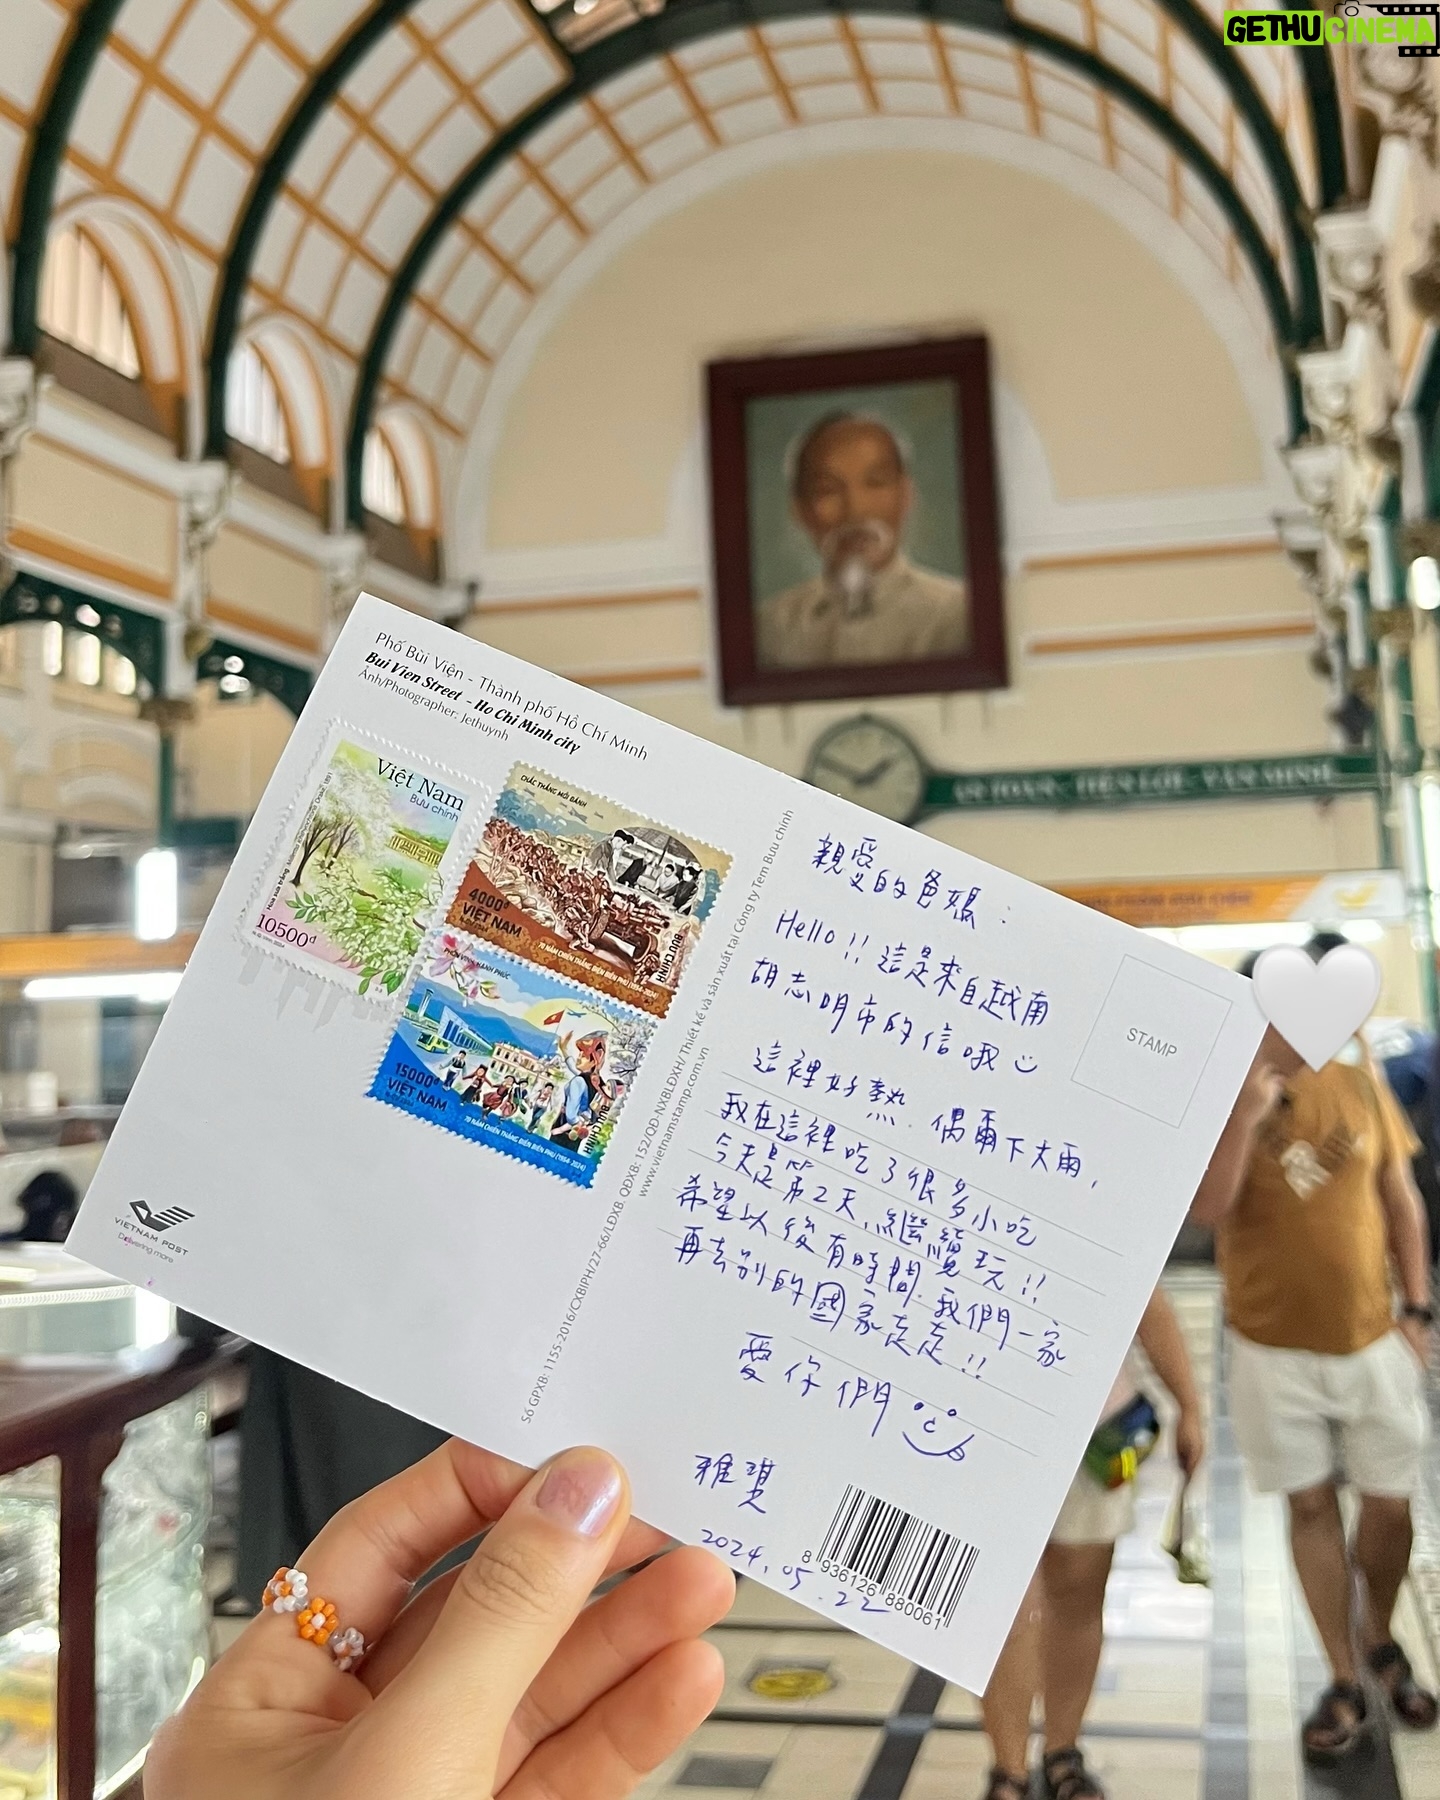 GETHUCINEMA
AN TOÀN - TIỆN LỢI - VĂN MINH
Phố Bùi Viện - Thành phố Hồ Chí Minh
Bui Vien Street - Ho Chi Minh city
Ảnh/Photographer: Jethuynh
Việt Nam
Bưu chính
10500đ
CHẮC THẮNG MỚI ĐÁNH
4000đ
VIỆT NAM
BƯU CHÍNH
70 NĂM CHIẾN THẮNG ĐIỆN BIÊN PHỦ (1954-2024)
PHỒN VINH, HẠNH PHÚC
15000đ
VIỆT NAM
BƯU CHÍNH
70 NĂM CHIẾN THẮNG ĐIỆN BIÊN PHỦ (1954-2024)
VIETNAM POST
Delivering more
Số GPXB: 1155-2016/CXBIPH/27-66/LĐXB. QĐXB: 152/QĐ-NXBLĐXH/ Thiết kế và sản xuất tại Công ty Tem Bưu chính
www.vietnamstamp.com.vn
STAMP
親愛的爸媽：
Hello!! 這是來自越南
胡志明市的信哦
這裡好熱. 偶爾下大雨,
我在這裡吃了很多小吃
今天是第2天, 繼續玩!!
希望以後有時間, 我們一家
再去別的國家走走!!
愛你們
雅琪
2024.05.22
8 936126 880061